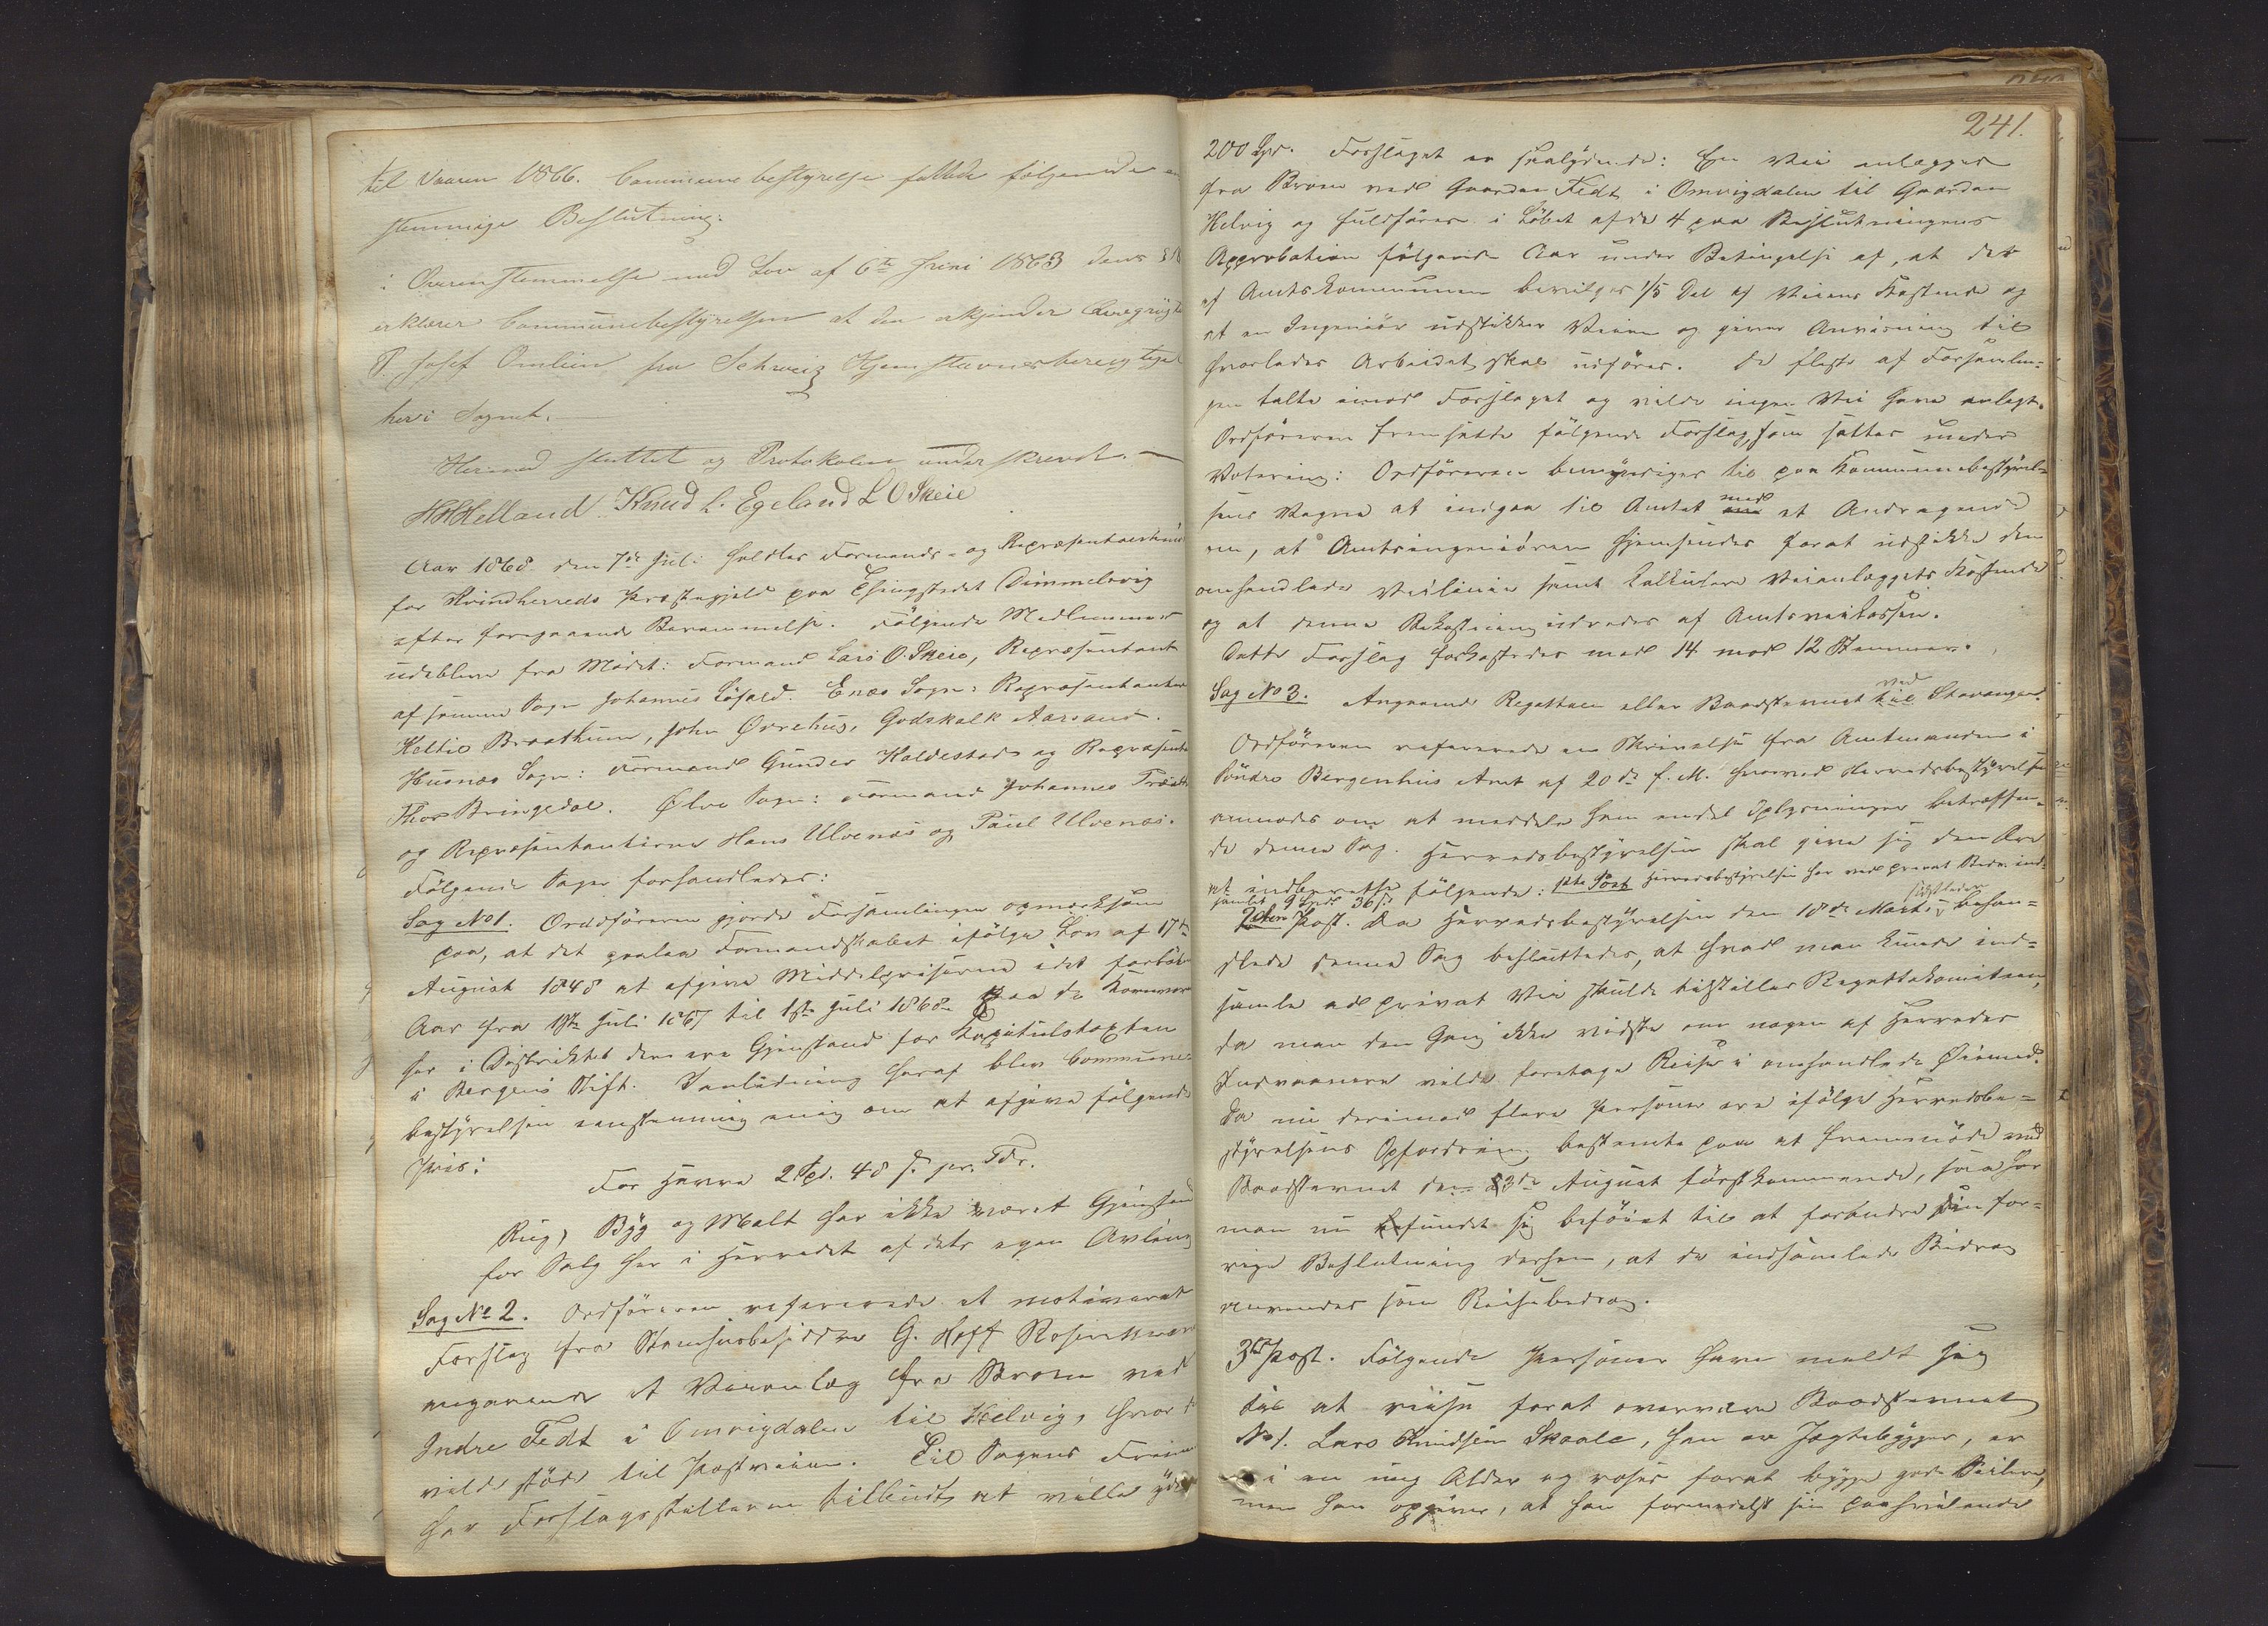 til Vaaren 1866. Communebestyrelse fattede følgende en
stemmige Beslutning:
i Overensstemmelse med Lov af 6te Juni 1863 dens §
erklærer Communebestyrelsen at den erkjender
P. Josef Omlin fra Schweiz Hjemstavnsberettiget
her i Sognet.
Hermed sluttet og Protokolen underskrevet. —
HHHelland Knud L. Egeland L O Skeie
Aar 1868 den 7de Juli holdtes Formands- og Repræsentantmøde
for Kvindherreds Præstegjeld paa Thingstedet Dimmelsvig
efter foregaaende Berammelse. Følgende Medlemmer
udebleve fra Mødet: Formand Lars O. Skeie, Repræsentant
af samme Sogn Johannes Løfald. Enæs Sogn: Repræsentanterne
Keltil Braathun, John Øvrehus, Godskalk Aarsand.
Husnæs Sogn: Formand Gunder Kaldestad og Repræsentant
Thor Bringedal. Ølve Sogn: Formand Johannes Træet
og Repræsentanterne Hans Ulvenæs og Paul Ulvenæs.
Følgende Sager forhandledes:
Sag No 1. Ordføreren gjorde Forsamlingen opmærksom
paa, at det paalaa Formandskabet ifølge Lov af 17de
August 1848 at afgive Middelpriserne i det forløbne
Aar fra 1ste Juli 1867 til 1ste Juli 1868 paa de Kornvarer
her i Distriktet der ere Gjenstand for Kapitulstaxten
i Bergens Stift. I Anledning heraf blev Commune-
bestyrelsen eenstemmig enig om at afgive følgende
Priis:
For Havre 2 Spd. 48 s. pr. Tdr.
Rug, Byg og Malt har ikke været Gjenstand
for Salg her i Herredet af dets egen Avling
Sag No 2. Ordføreren refererede et motiveret
Forslag fra Stamhusbesidder G. Hoff Rosenkrone
angaaende et Veianlæg fra Broen ved
Indre Fedt i Omvigdalen til Helvig, hvor
vilde støde til Postveien. Til Sagens Fremme
har Forslagsstilleren tilbudt at ville yde
241.
200 Spd. Forslaget er saalydende: En Vei anlægges
fra Broen ved Gaarden Fedt i Omvigdalen til Gaarden
Helvig og fuldføres i Løbet af de 4 paa Beslutningens
Approbation følgende Aar under Betingelse af, at der
af Amtskommunen bevilges 1/5 Del af Veiens Kostende og
at en Ingeniør udstikker Veien og giver Anvisning til
hvorledes Arbeidet skal udføres. De fleste af Forsamlin-
gen talte imod Forslaget og vilde ingen Vei have anlagt.
Ordføreren fremsatte følgende Forslag, som sattes under
Votering: Ordføreren bemyndiges til paa Kommunebestyrel-
sens Vegne at indgaa til Amtet med et Andragende
om, at Amtsingeniøren hjemsendes forat udstikke den
omhandlede Veilinie samt kalkulere Veianlæggets Kostende
og at denne Bekostning udredes af Amtsveikassen.
Dette Forslag forkastedes med 14 mod 12 Stemmer.
Sag No 3. Angaaende Regattaen eller Baadstevnet ved Stavanger.
Ordføreren refererede en Skrivelse fra Amtmanden i
Søndre Bergenhus Amt af 20de f. M. hvorved Herredsbestyrelsen
anmodes om at meddele ham endel Oplysninger betræffen-
de denne Sag. Herredsbestyrelsen skal give sig den Ære
at indberette følgende: 1ste Post Herredsbestyrelsen har ved privat Bidr. ind-
samlet 9 Spd. 36 s.
2den Post. Da Herredsbestyrelsen den 18de Marts sidstleden behan-
dlede denne Sag besluttedes, at hvad man kunde ind-
samle ad privat Vei skulde tilstilles Regattakomiteen,
da man den Gang ikke vidste om nogen af Herredets
Indvaanere vilde foretage Reise i omhandlede Øiemed.
Da nu derimod flere Personer ere ifølge Herredsbe-
styrelsens Opfordring bestemte paa at fremmøde ved
Baadstevnet den 3de August førstkommende, saa har
man nu fundet sig beføiet til at forandre sin for-
rige Beslutning derhen, at de indsamlede Bidrag
anvendes som Reisebidrag.
3die Post. Følgende Personer have meldt sig
til at reise forat overvære Baadstevnet
No 1. Lars Knudsen Skaale, han er Jægtebygger, er
i en ung Alder og roses forat bygge gode Seilere,
men han opgiver, at han formedelst sin paahvilende